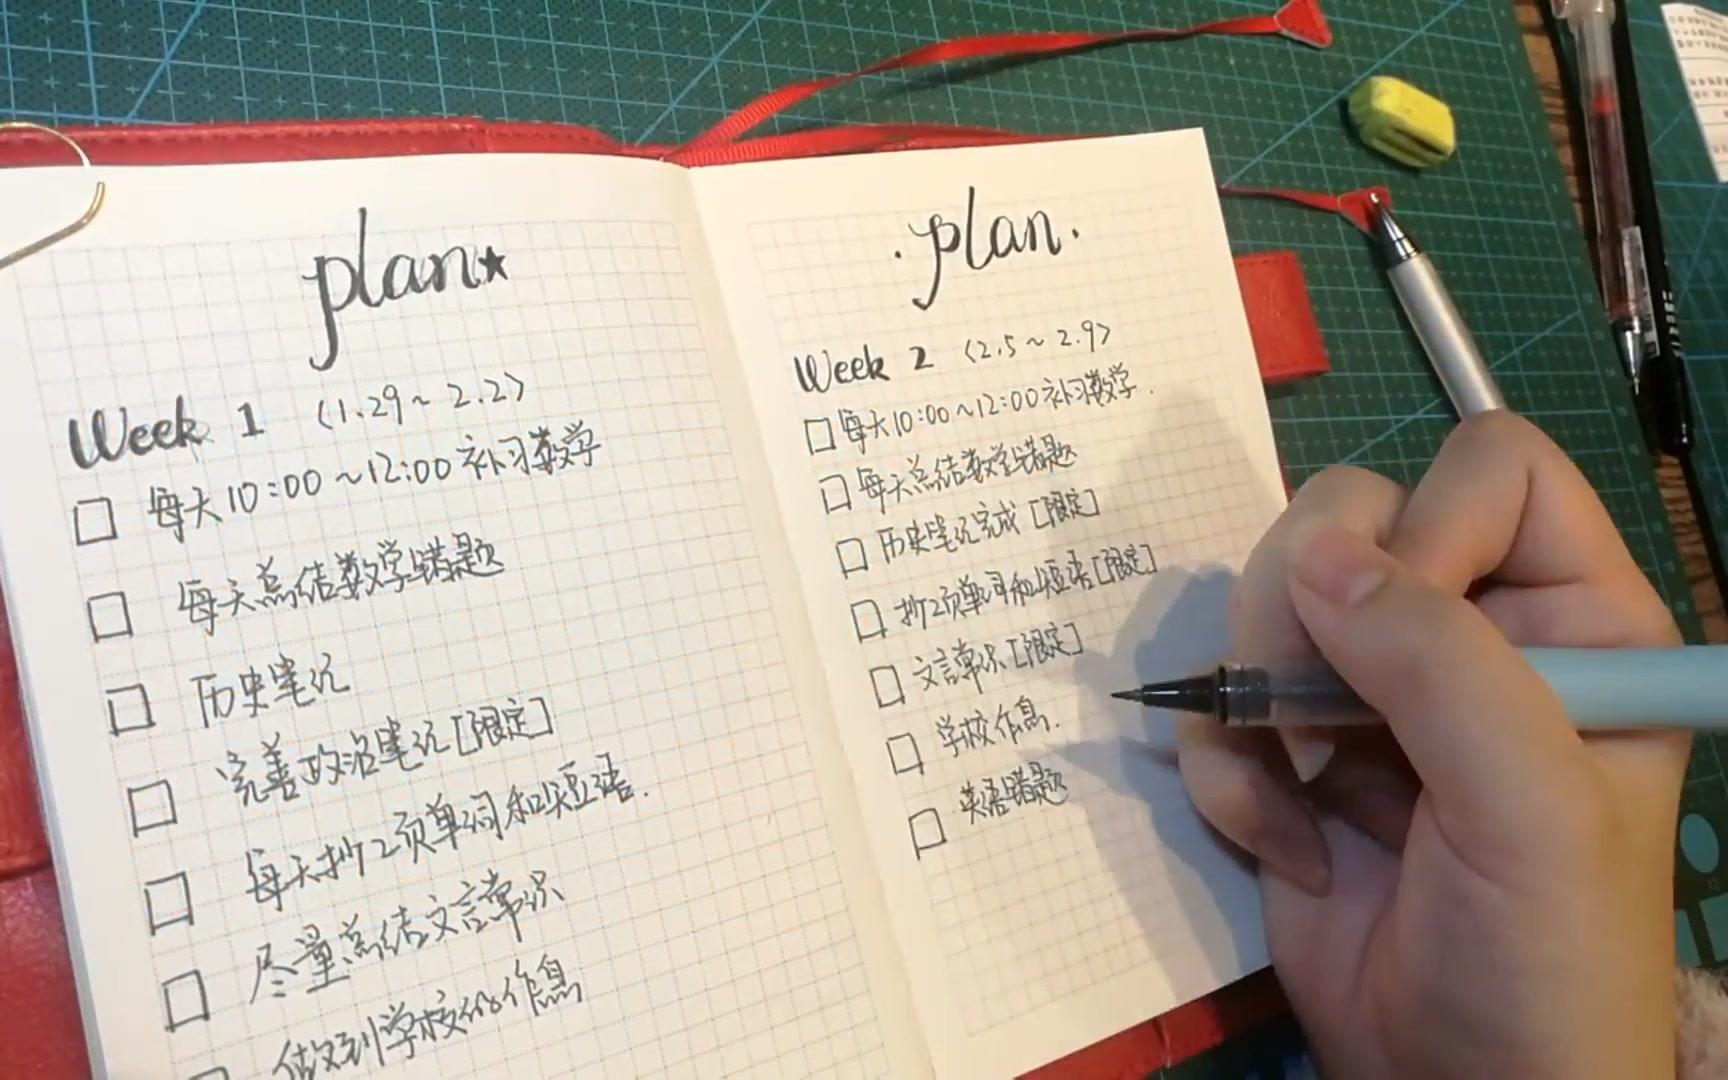 plan★
Week 1 〈1.29～2.2〉
每天10:00～12:00补习数学
每天总结数学错题
历史笔记
完善政治笔记[限定]
每天抄2页单词和短语.
尽量总结文言常识
做到学校的作息
·plan·
Week 2 〈2.5～2.9〉
每天10:00～12:00补习数学.
每天总结数学错题
历史笔记完成[限定]
抄2页单词和短语[限定]
文言常识[限定]
学校作息.
英语错题